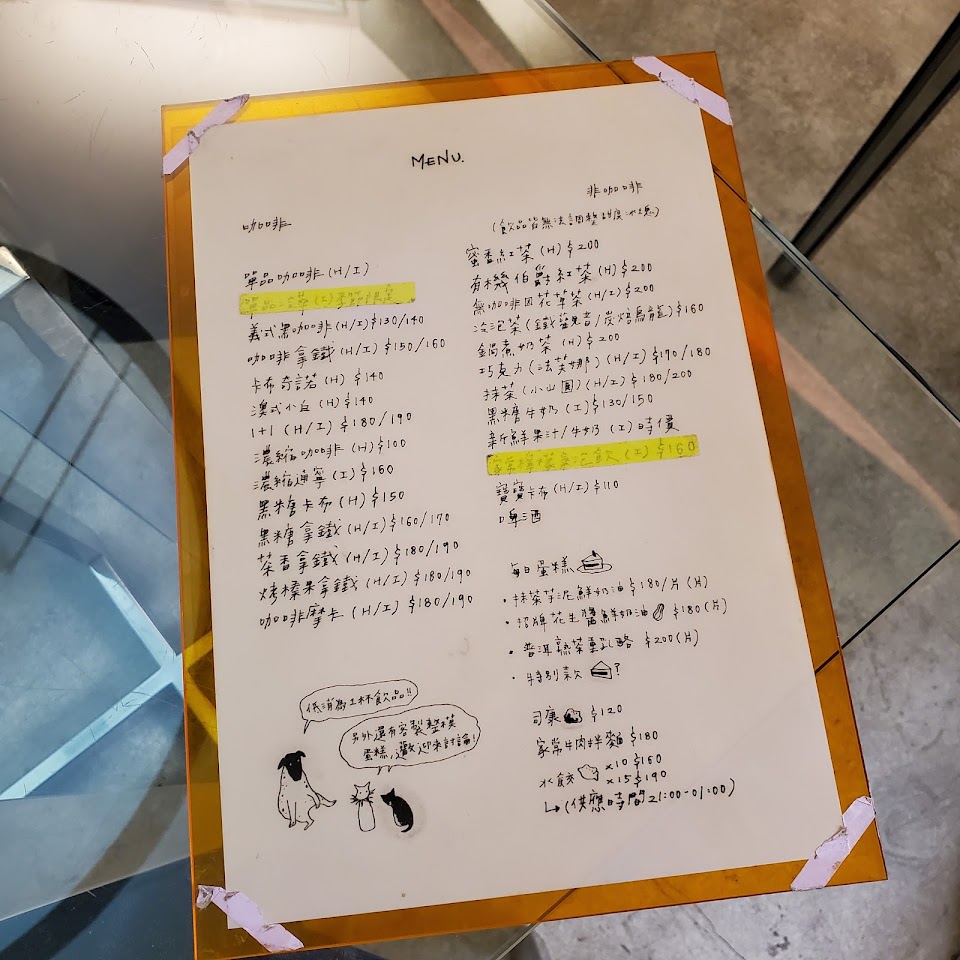 MENU.
咖啡
單品咖啡(H/I)
單品冰 (I)季節限定
義式黑咖啡(H/I)$130/140
咖啡拿鐵(H/I)$150/160
卡布奇諾(H) $140
澳式小白(H)$140
1+1(H/I)$180/190
濃縮咖啡(H)$100
濃縮通寧(I)$160
黑糖卡布(H)$150
黑糖拿鐵(H/I)$160/170
茶香拿鐵(H/I)$180/190
烤榛果拿鐵(H/I)$180/190
咖啡摩卡(H/I)$180/190
低消為1杯飲品!!
另外還有客製整模
蛋糕,歡迎來討論!
非咖啡
(飲品皆無法調整甜度冰塊)
蜜香紅茶(H)$200
有機伯爵紅茶(H)$200
無咖啡因花草茶(H/I)$200
冷泡茶(鐵觀音/炭焙烏龍)$160
鍋煮奶茶(H)$200
巧克力(法芙娜)(H/I)$170/180
抹茶(小山園)(H/I)$180/200
黑糖牛奶(I)$130/150
新鮮果汁/牛奶(I)時價
家常檸檬氣泡飲(I)$160
寶寶卡布(H/I)$110
啤酒
每日蛋糕
・抹茶芋泥鮮奶油$180/片(片)
・招牌花生醬鮮奶油 $180(片)
・普洱熟茶重乳酪 $200(片)
・特別款 ?
司康 $120
家常牛肉拌麵$180
水餃 x10 $160
x15 $190
↳(供應時間21:00-01:00)